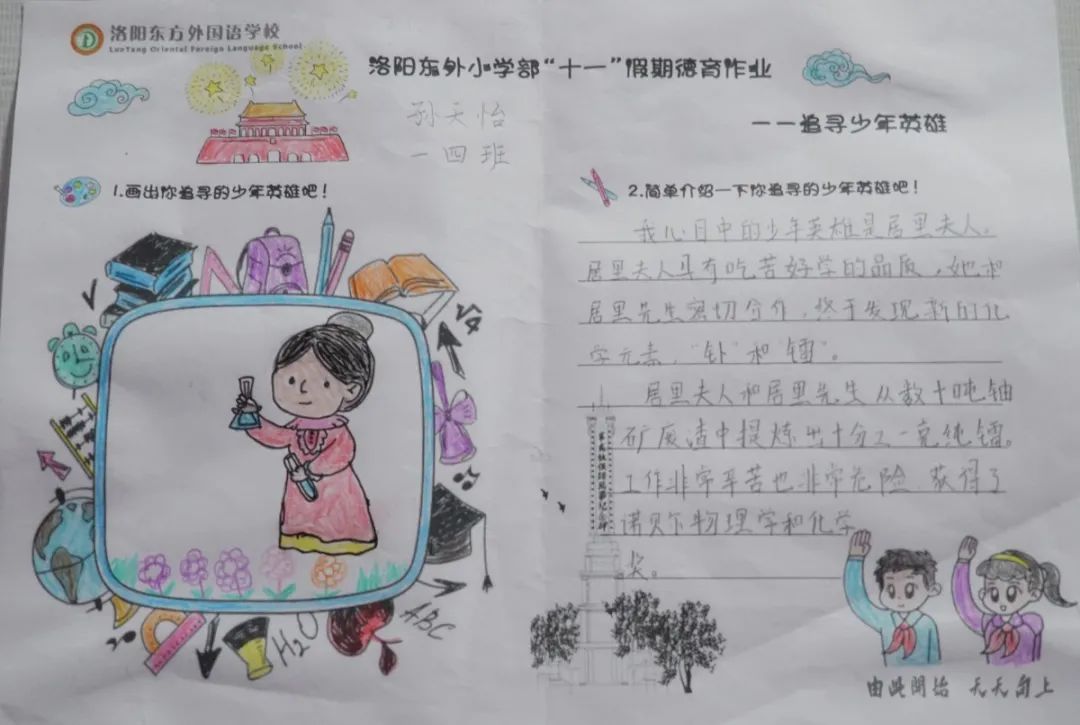 洛阳东方外国语学校
LuoYang Oriental Foreign Language School
洛阳东外小学部“十一”假期德育作业
——追寻少年英雄
孙天怡
一四班
1.画出你追寻的少年英雄吧！
2.简单介绍一下你追寻的少年英雄吧！
我心目中的少年英雄是居里夫人。
居里夫人具有吃苦好学的品质，她和
居里先生密切合作，终于发现新的化
学元素，“钋”和“镭”。
居里夫人和居里先生从数十吨铀
矿废渣中提炼出十分之一克纯镭。
工作非常辛苦也非常危险，获得了
诺贝尔物理学和化学
奖。
H₂O
ABC
由此开始 天天向上